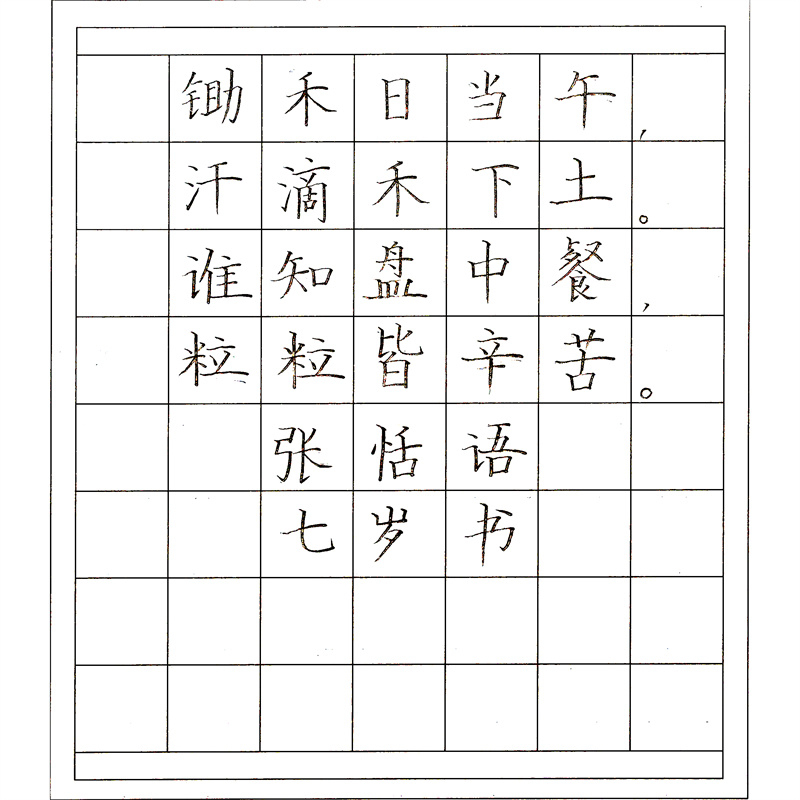 锄禾日当午，
汗滴禾下土。
谁知盘中餐，
粒粒皆辛苦。
张恬语
七岁书